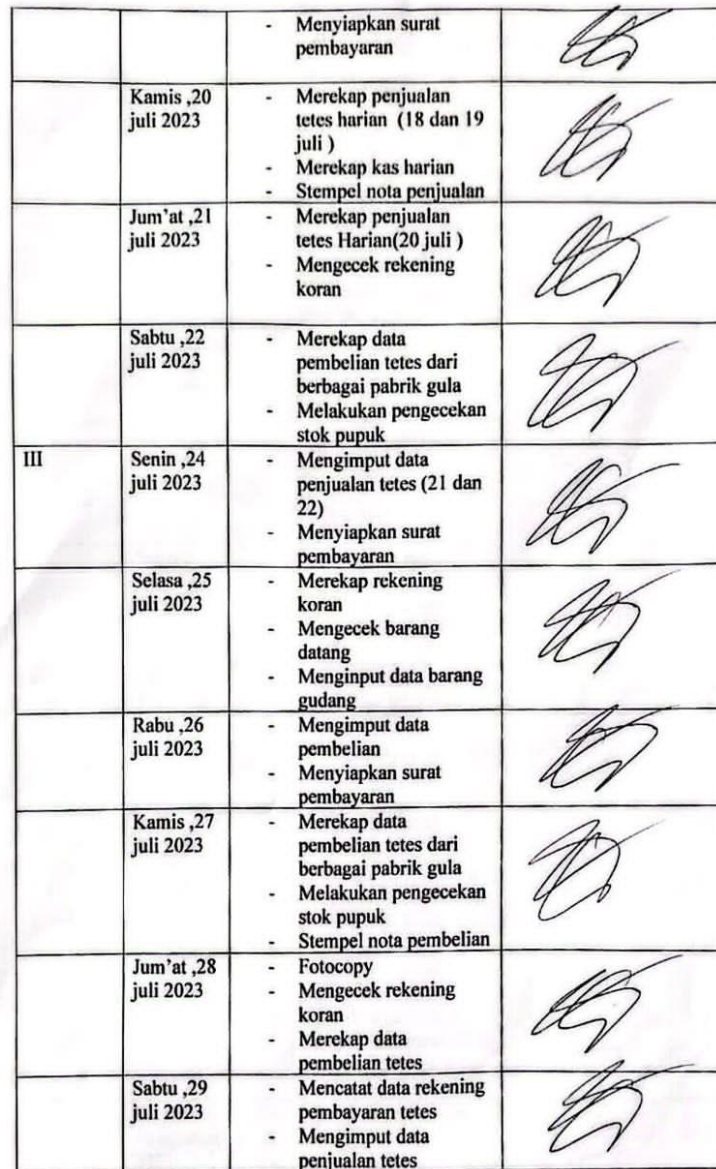 - Menyiapkan surat
pembayaran
Kamis ,20
juli 2023
- Merekap penjualan
tetes harian (18 dan 19
juli )
- Merekap kas harian
- Stempel nota penjualan
Jum'at ,21
juli 2023
- Merekap penjualan
tetes Harian(20 juli )
- Mengecek rekening
koran
Sabtu ,22
juli 2023
- Merekap data
pembelian tetes dari
berbagai pabrik gula
- Melakukan pengecekan
stok pupuk
III
Senin ,24
juli 2023
- Mengimput data
penjualan tetes (21 dan
22)
- Menyiapkan surat
pembayaran
Selasa ,25
juli 2023
- Merekap rekening
koran
- Mengecek barang
datang
- Menginput data barang
gudang
Rabu ,26
juli 2023
- Mengimput data
pembelian
- Menyiapkan surat
pembayaran
Kamis ,27
juli 2023
- Merekap data
pembelian tetes dari
berbagai pabrik gula
- Melakukan pengecekan
stok pupuk
- Stempel nota pembelian
Jum'at ,28
juli 2023
- Fotocopy
- Mengecek rekening
koran
- Merekap data
pembelian tetes
Sabtu ,29
juli 2023
- Mencatat data rekening
pembayaran tetes
- Mengimput data
penjualan tetes